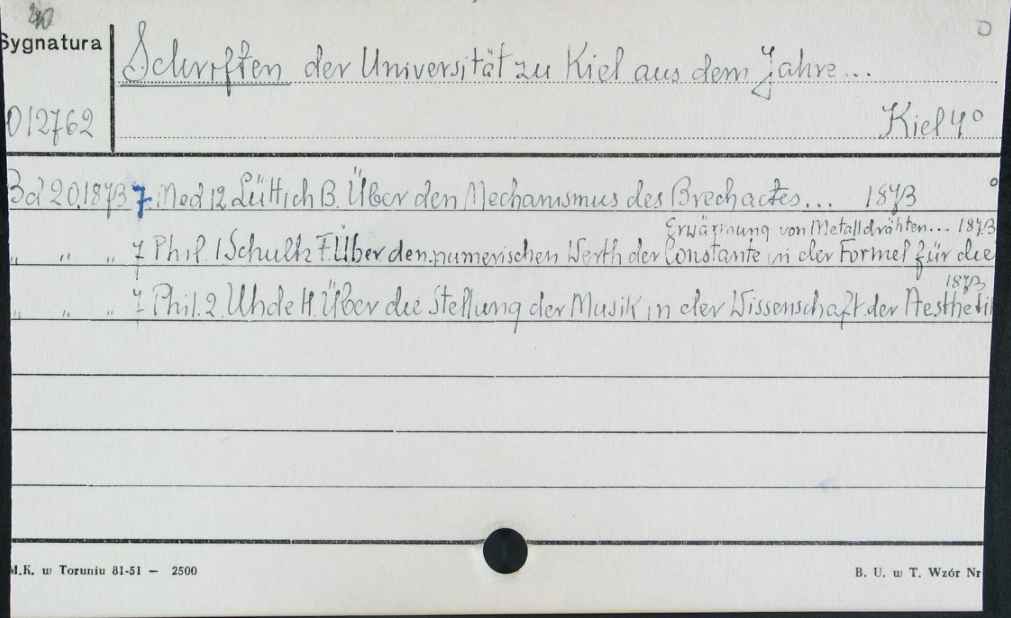 Sygnatura
Schriften der Universität zu Kiel aus dem Jahre...
012762
Kiel 4°
Bd 20.1873 7. Med 12 Lüttich B. Über den Mechanismus des Brechactes... 1873
Erwärmung von Metalldrähten... 1873
" " " 7 Phil. 1 Schultz F. Über den numerischen Werth der Constante in der Formel für die
1873
" " " 7 Phil. 2. Uhde H. Über die Stellung der Musik in der Wissenschaft der Aestheti
M.K. w Toruniu 81-51 — 2500
B. U. w T. Wzór Nr